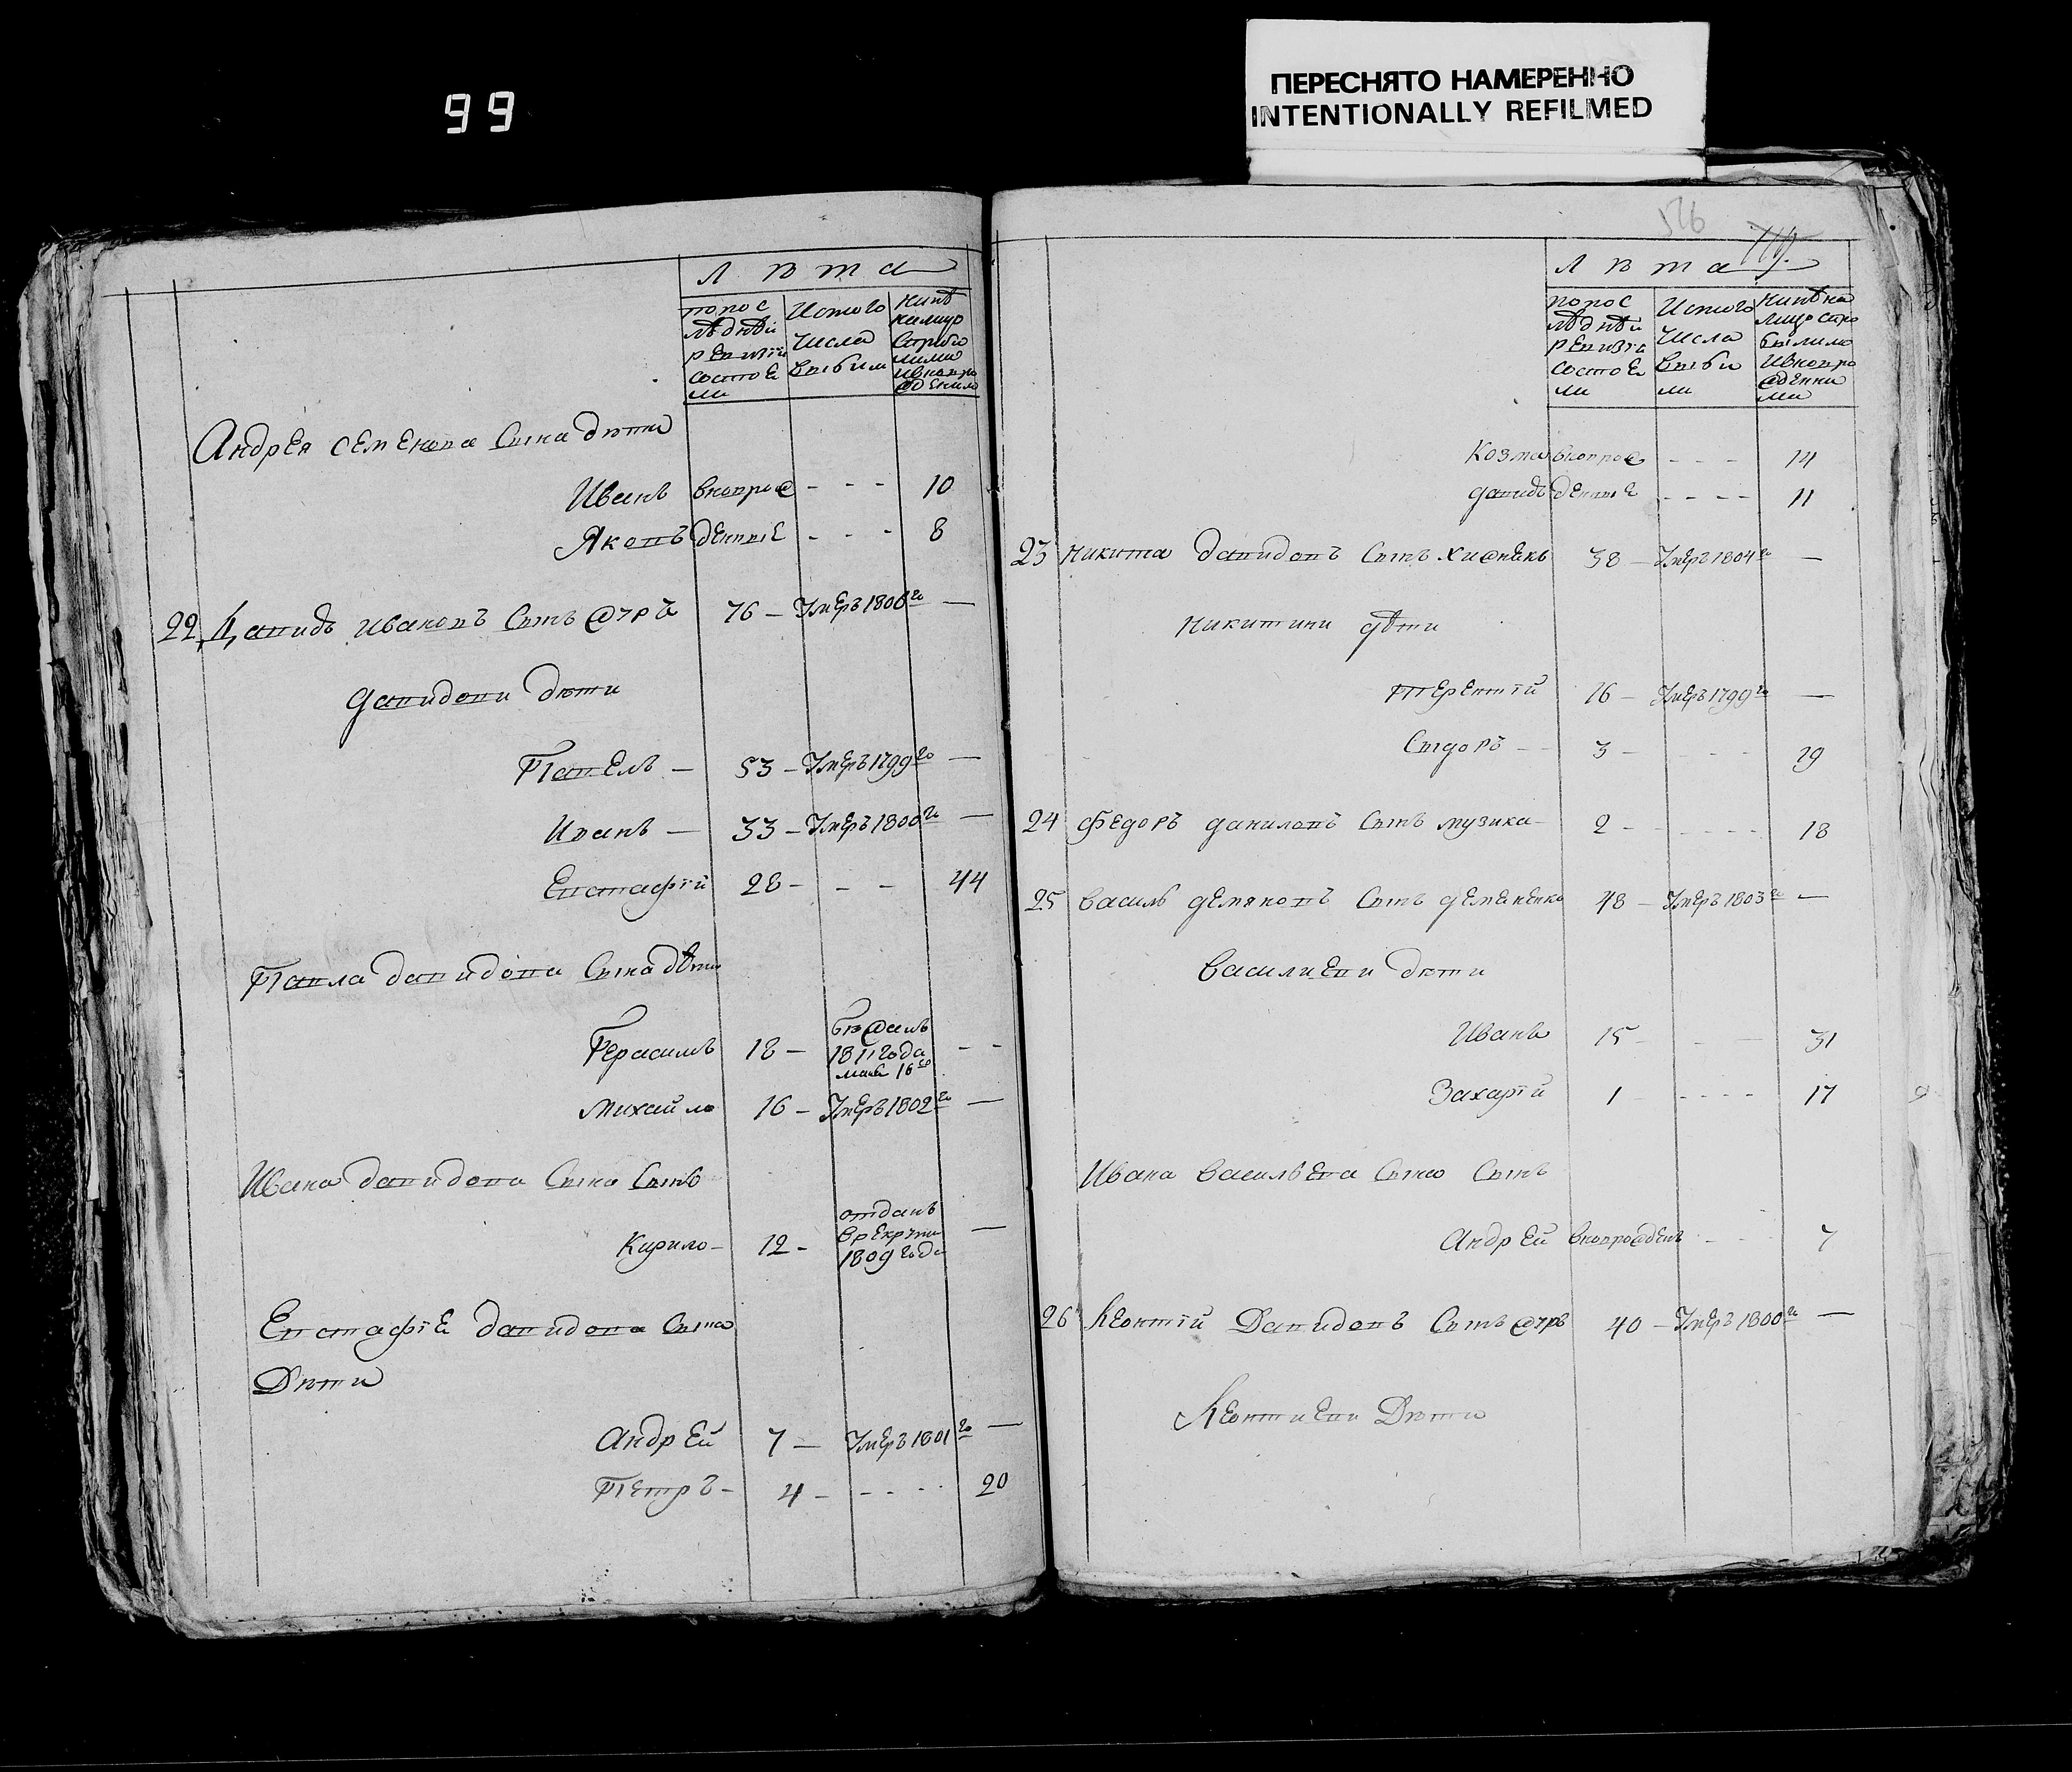 99
ПЕРЕСНЯТО НАМЕРЕННО
INTENTIONALLY REFILMED
Лѣта
попос
лѣднѣй
ревизіи
состоя
ли
Истого
числа
выбыли
Нинѣ
налицо
Андрея семенова Сына дѣти
Иванъ вновро 10
Яковъ денные - - - 8
22 Давидъ Ивановъ Сынъ 76 - Умеръ 1806го —
Давидови дѣти
Павелъ — 53 - Умеръ 1799го —
Иванъ — 33 - Умеръ 1800го —
Евстафій 28 - - - 44
Павла давидова Сына дѣти
Герасимъ 18 - бѣжалъ
1811 года - -
маія 16го
Михайло 16 - Умеръ 1802го —
Ивана давидова Сына Сынъ
Кирило - 12 - отданъ
врекрути —
1809 года
Евстафіе давидова Сына
Дѣти
Андрей 7 - Умеръ 1801го —
Петръ - 4 - - - - 20
526
Лѣта
попос
лѣднѣй
ревизіи
состоя
ли
Истого
числа
выбы
ли
Нинѣ на
лицо спри
былими
Ивновро
жденни
ми
Козма вновро - - - 14
давидъ денные - - - - 11
23 Никита давидовъ Сынъ 38 - Умеръ 1804го —
Никитини дѣти
Терентій 16 - Умеръ 1799го —
Сыдоръ - 3 - - - - 19
24 Федоръ даниловъ Сынъ музика - 2 - - - - - 18
25 Василь демяновъ Сынъ деменѣнко 48 - Умеръ 1803го —
Василиеви дѣти
Иванъ 15 - - - 31
Захарій 1 - - - - 17
Ивана Васильева Сына Сынъ
Андрей вноврожденъ - - 7
26 Леонтій Давидовъ Сынъ 40 - Умеръ 1800го —
Леонтиеви Дѣти